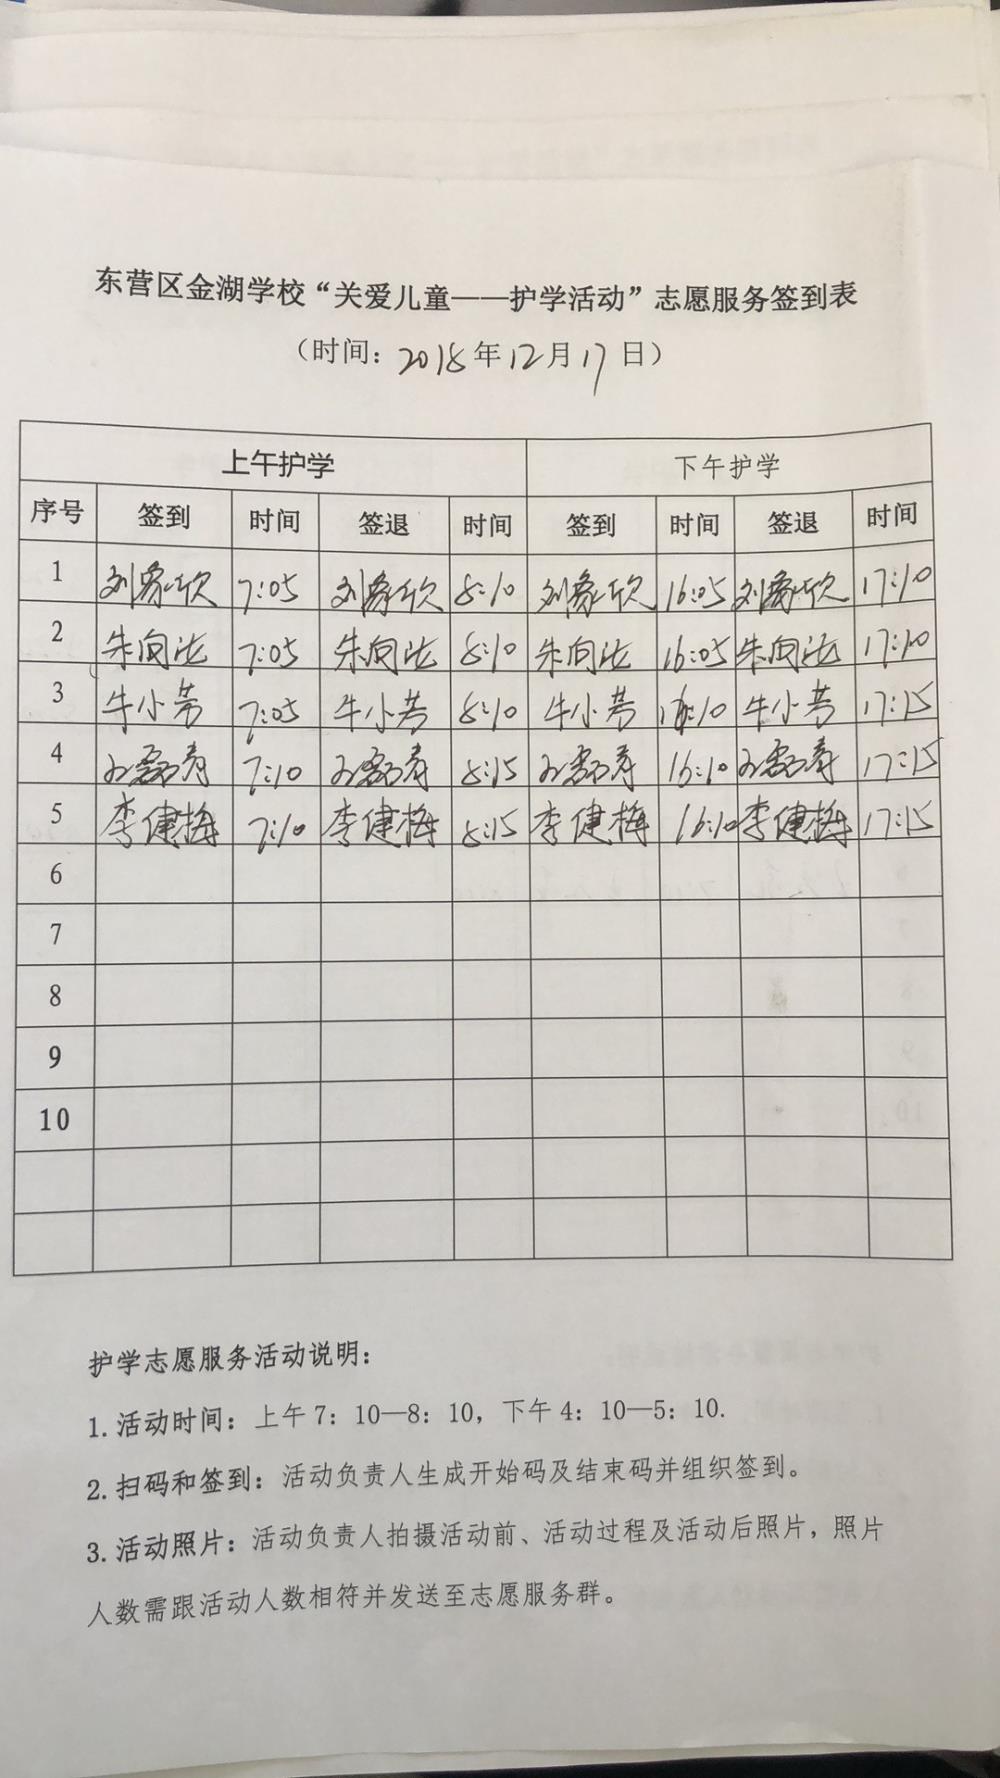 东营区金湖学校“关爱儿童——护学活动”志愿服务签到表
（时间：2018年12月17日）
上午护学 下午护学
序号 签到 时间 签退 时间 签到 时间 签退 时间
1 刘家欣 7:05 刘家欣 8:10 刘家欣 16:05 刘家欣 17:10
2 朱向法 7:05 朱向法 8:10 朱向法 16:05 朱向法 17:10
3 牛小芳 7:05 牛小芳 8:10 牛小芳 16:10 牛小芳 17:15
4 7:10 8:15 16:10 17:15
5 李健梅 7:10 李健梅 8:15 李健梅 16:10 李健梅 17:15
6
7
8
9
10
护学志愿服务活动说明：
1.活动时间：上午7：10—8：10，下午4：10—5：10.
2.扫码和签到：活动负责人生成开始码及结束码并组织签到。
3.活动照片：活动负责人拍摄活动前、活动过程及活动后照片，照片
人数需跟活动人数相符并发送至志愿服务群。